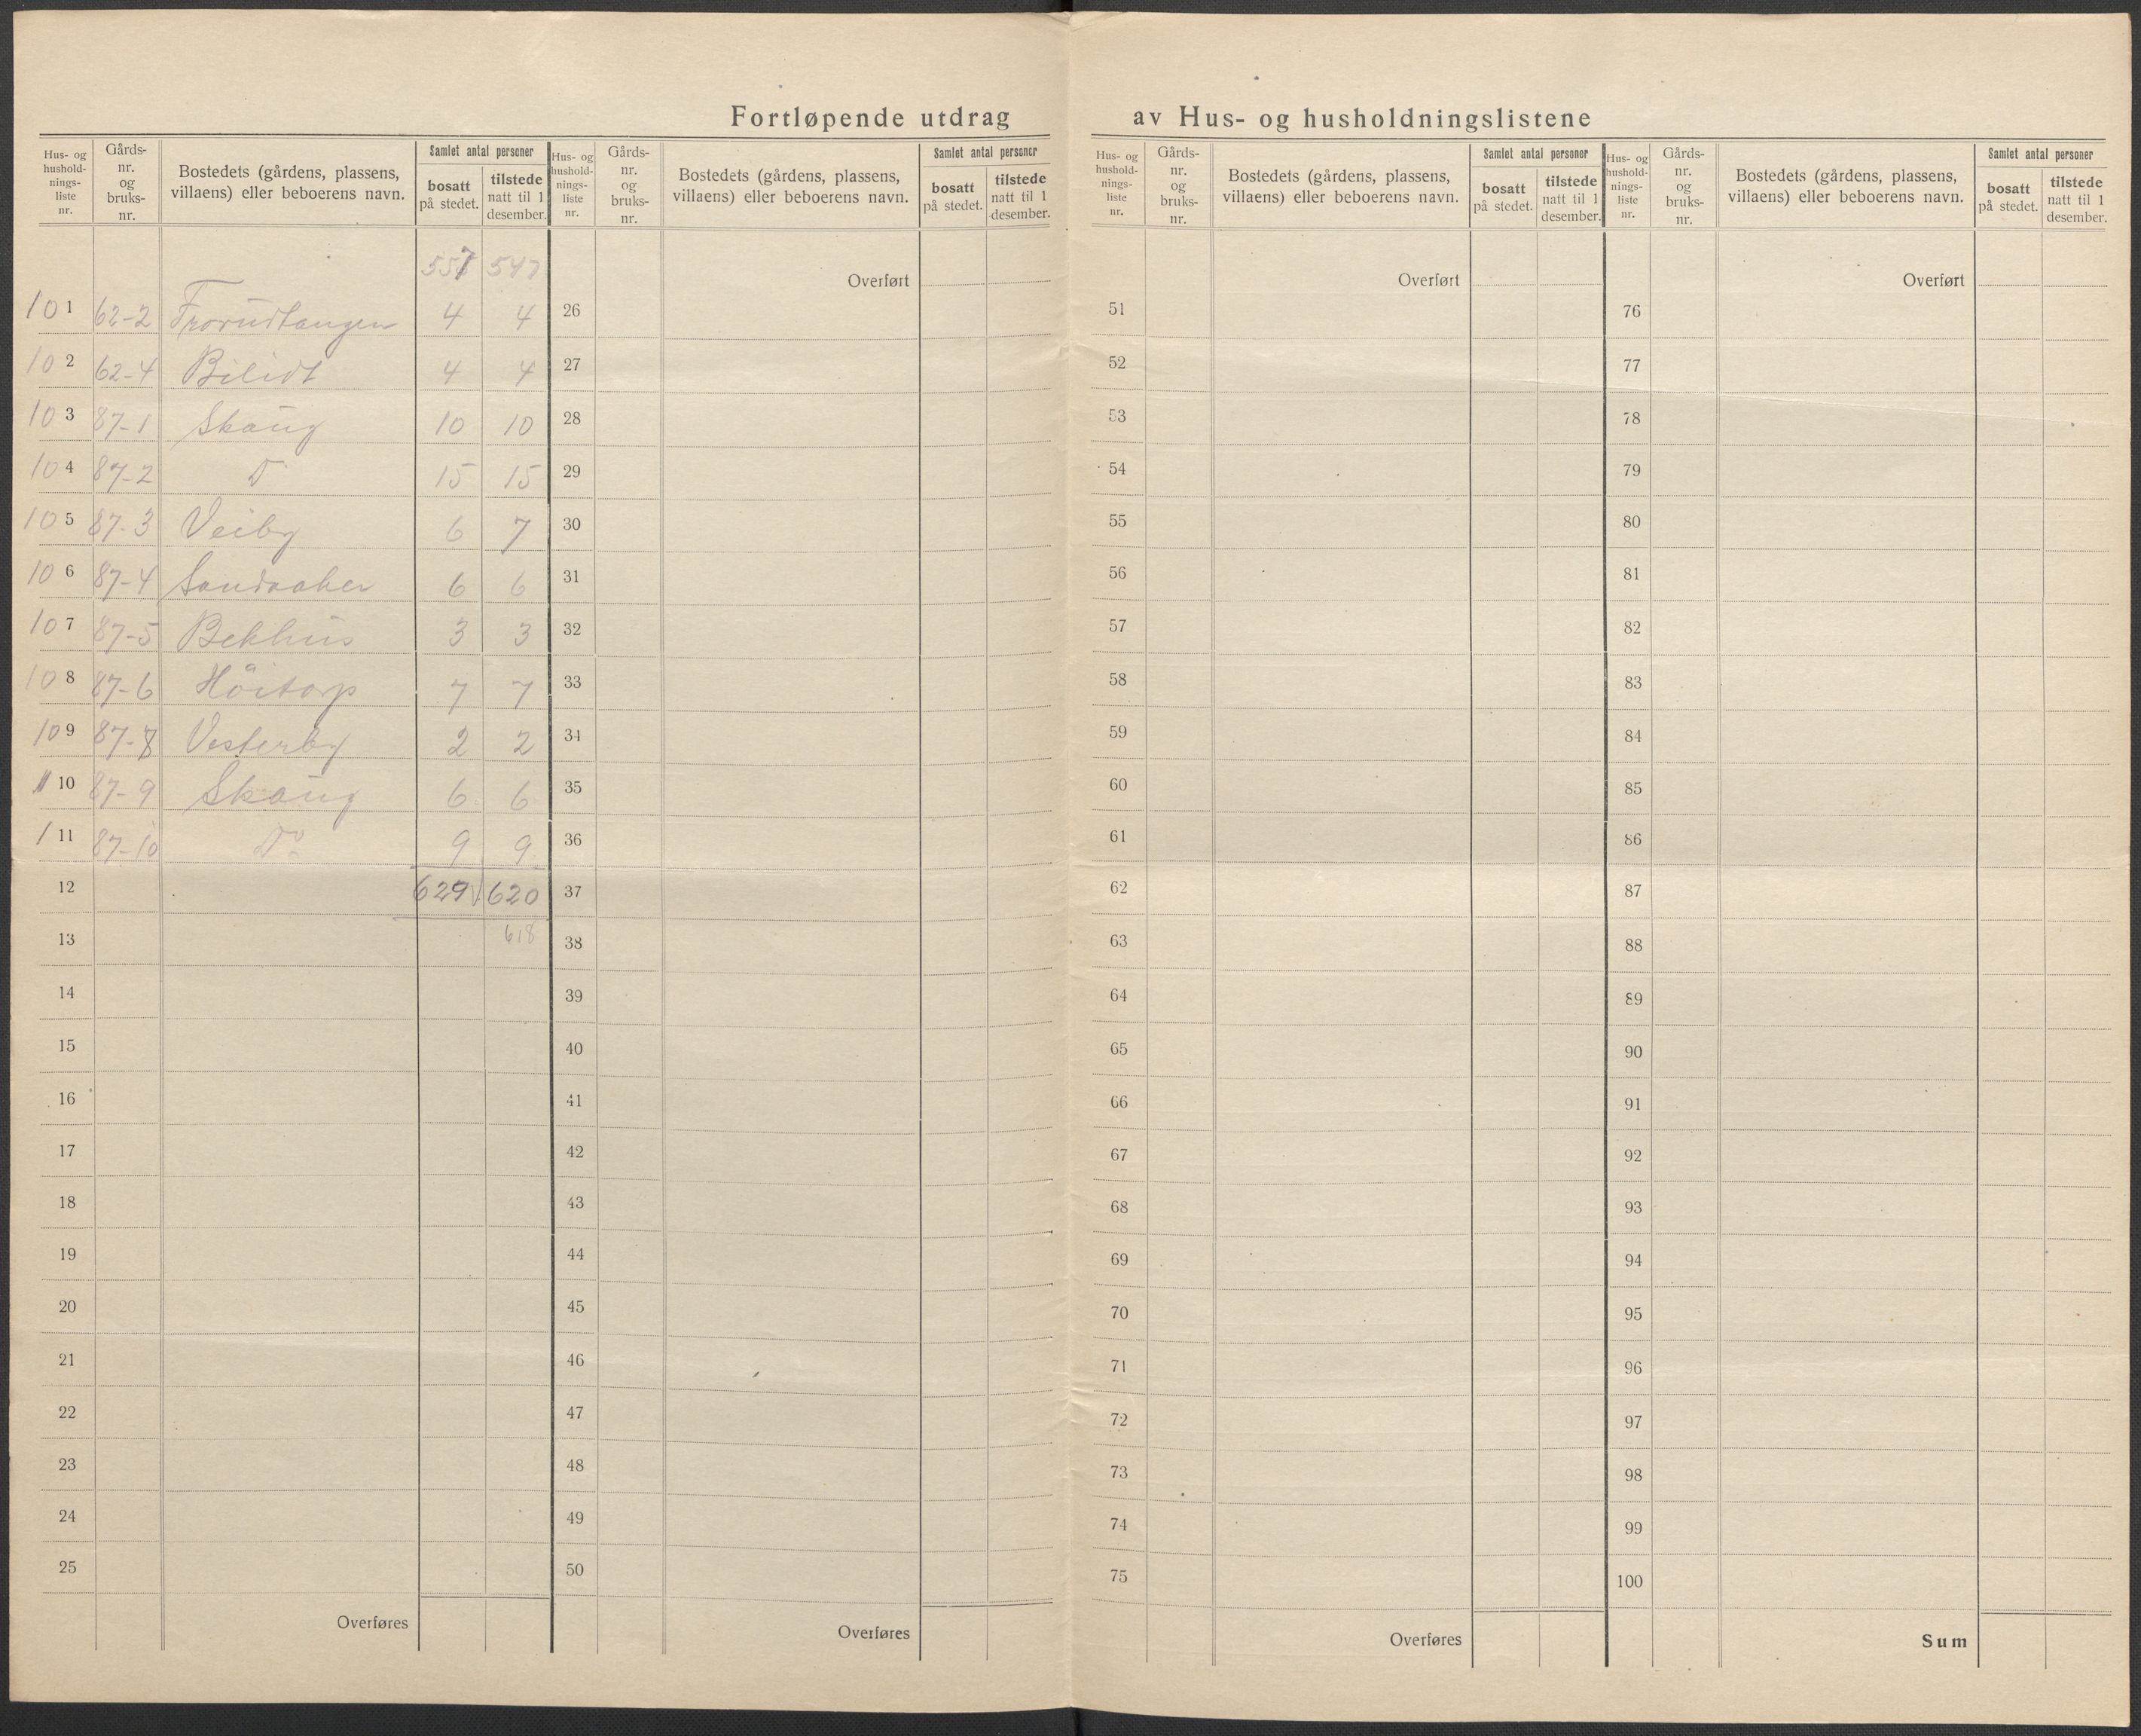 Fortløpende utdrag av Hus- og husholdningslistene
Hus- og hushold- nings- liste nr. | Gårds- nr. og bruks- nr. | Bostedets (gårdens, plassens, villaens) eller beboerens navn. | Samlet antal personer | bosatt på stedet. | tilstede natt til 1 desember.
557 547
101 62-2 Frorudtangen 4 4
102 62-4 Bilidt 4 4
103 87-1 Skaug 10 10
104 87-2 D 15 15
105 87-3 Veiby 6 7
106 87-4 Sandaaker 6 6
107 87-5 Bekhus 3 3
108 87-6 Höitorp 7 7
109 87-8 Vesterby 2 2
110 87-9 Skaug 6 6
111 87-10 Do 9 9
12 629 620
13 618
14
15
16
17
18
19
20
21
22
23
24
25
Overføres
Hus- og hushold- nings- liste nr. | Gårds- nr. og bruks- nr. | Bostedets (gårdens, plassens, villaens) eller beboerens navn. | Samlet antal personer | bosatt på stedet. | tilstede natt til 1 desember.
Overført
26
27
28
29
30
31
32
33
34
35
36
37
38
39
40
41
42
43
44
45
46
47
48
49
50
Overføres
Hus- og hushold- nings- liste nr. | Gårds- nr. og bruks- nr. | Bostedets (gårdens, plassens, villaens) eller beboerens navn. | Samlet antal personer | bosatt på stedet. | tilstede natt til 1 desember.
Overført
51
52
53
54
55
56
57
58
59
60
61
62
63
64
65
66
67
68
69
70
71
72
73
74
75
Overføres
Hus- og hushold- nings- liste nr. | Gårds- nr. og bruks- nr. | Bostedets (gårdens, plassens, villaens) eller beboerens navn. | Samlet antal personer | bosatt på stedet. | tilstede natt til 1 desember.
Overført
76
77
78
79
80
81
82
83
84
85
86
87
88
89
90
91
92
93
94
95
96
97
98
99
100
Sum